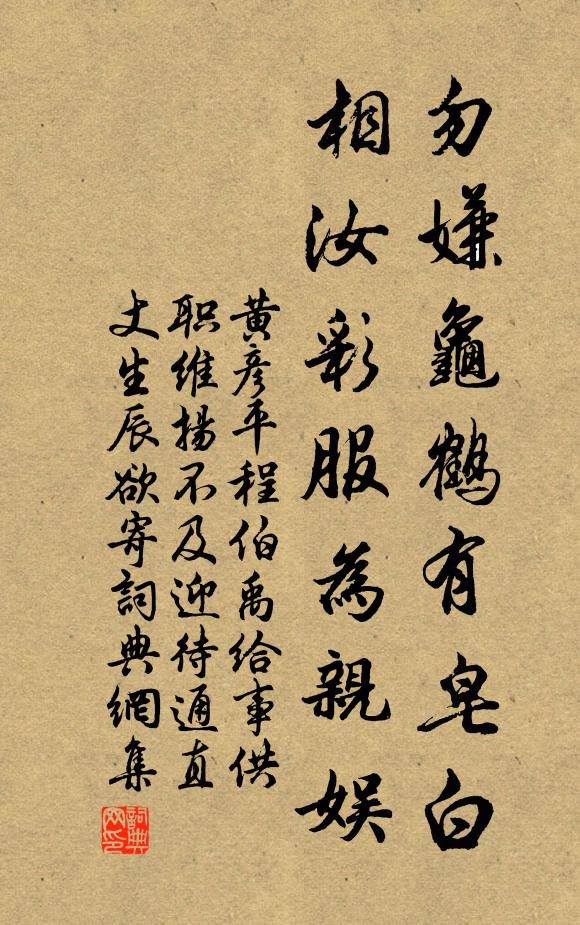 勿嫌龜鶴有皂白
相汝彩服為親娱
黄彦平程伯禹給事供
职維揚不及迎待通直
丈生辰欲寄詞典網集
詞典
网印